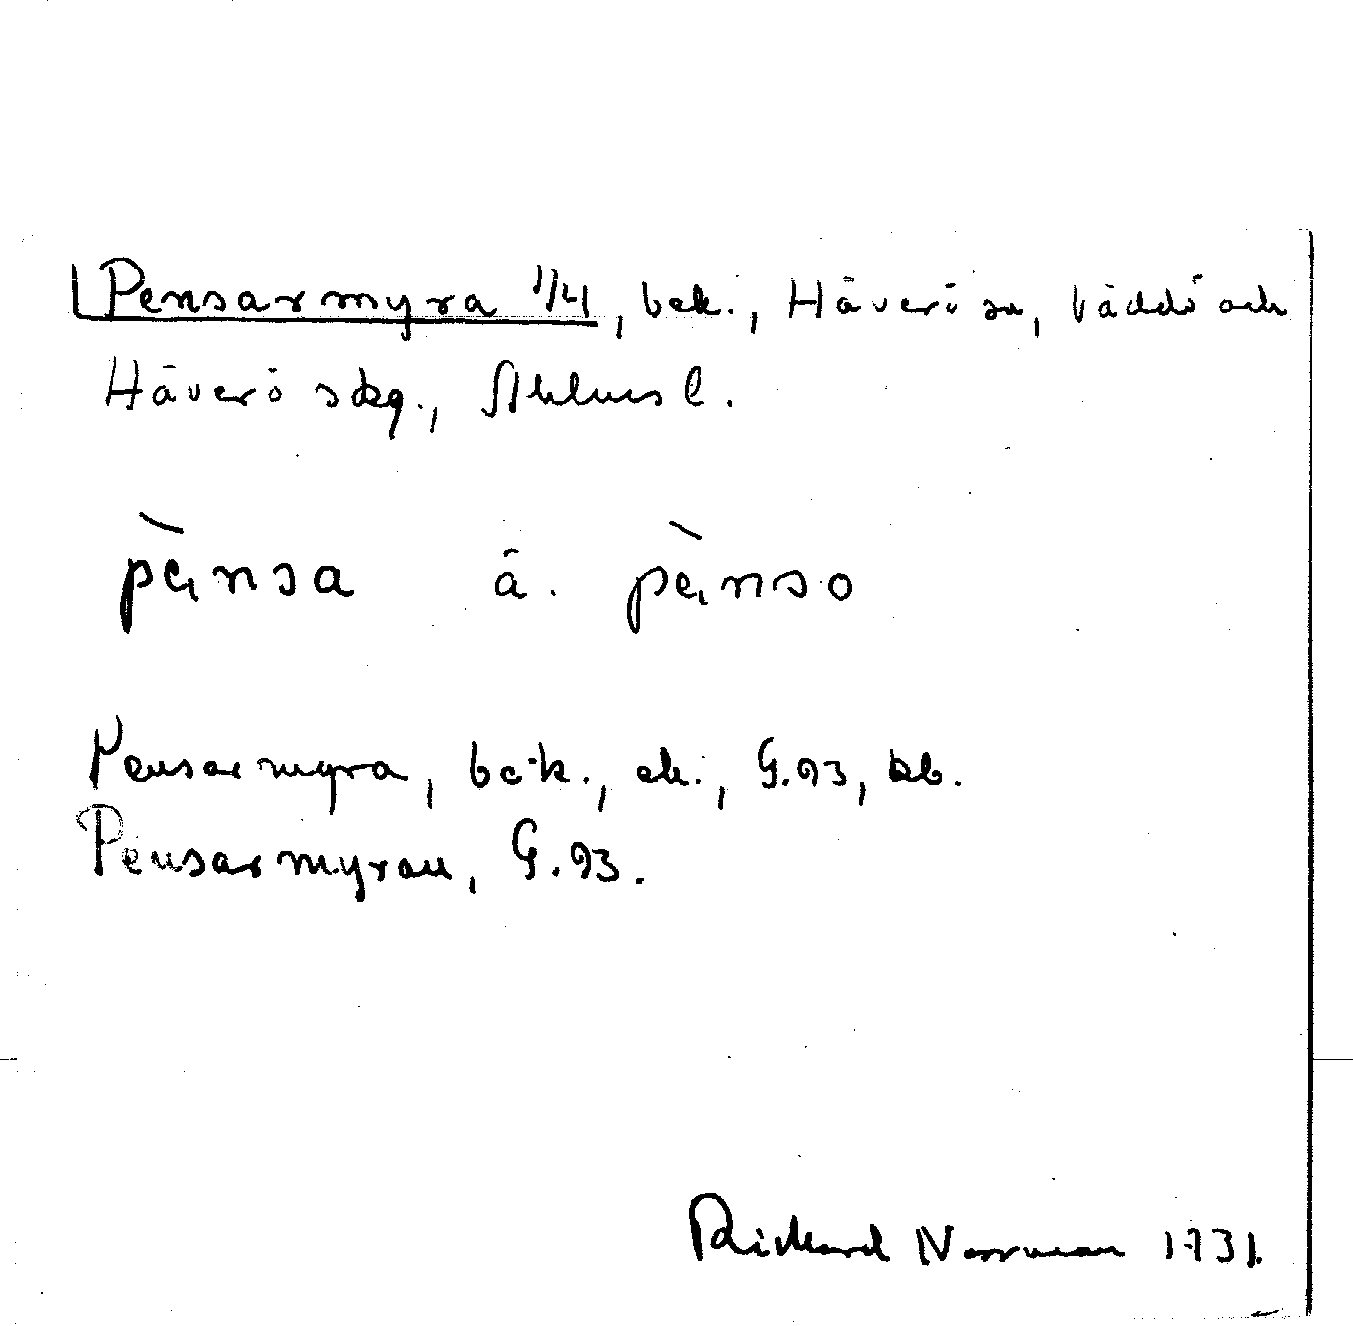 Pensarmyra 1/4, bek., Häverö sn, Väddö och
Häverö skg., Sthlms l.
pènsa ä. pènso
Pensarmyra, bek., ek., G.93, kb.
Pensarmyran, G.93.
Rickard Norrman 1931.